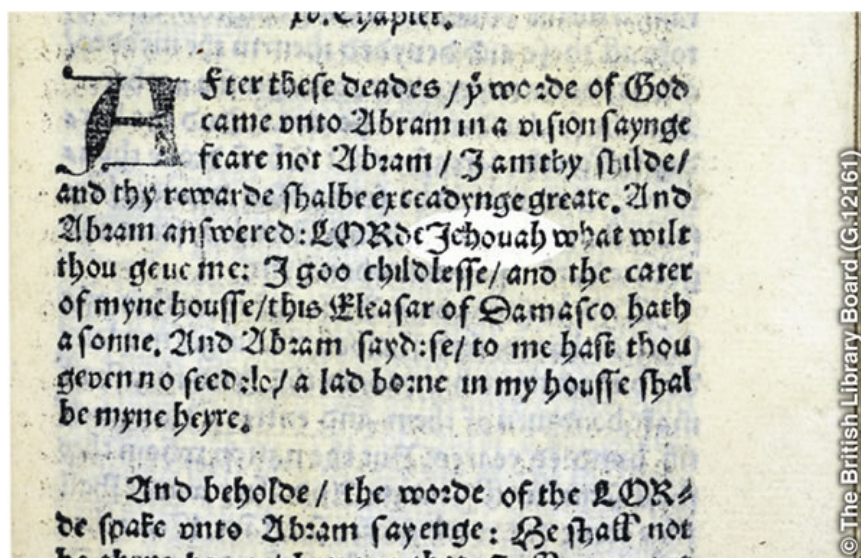 Chapter.
After theſe deades / ẏ worde of God
came vnto Abram in a viſion ſaynge
feare not Abram / I am thy ſhilde/
and thy rewarde ſhalbe exceadynge greate. And
Abram anſwered: LORde Jehouah what wilt
thou geue me: I goo childleſſe/ and the cater
of myne houſſe/this Eleaſar of Damaſco hath
a ſonne. And Abram ſayd: ſe/ to me haſt thou
geven no ſeed: lo/ a lad borne in my houſſe ſhal
be myne heyre.
And beholde / the worde of the LOR⸗
de ſpake vnto Abram ſayenge: He ſhall not
© The British Library Board (G.12161)